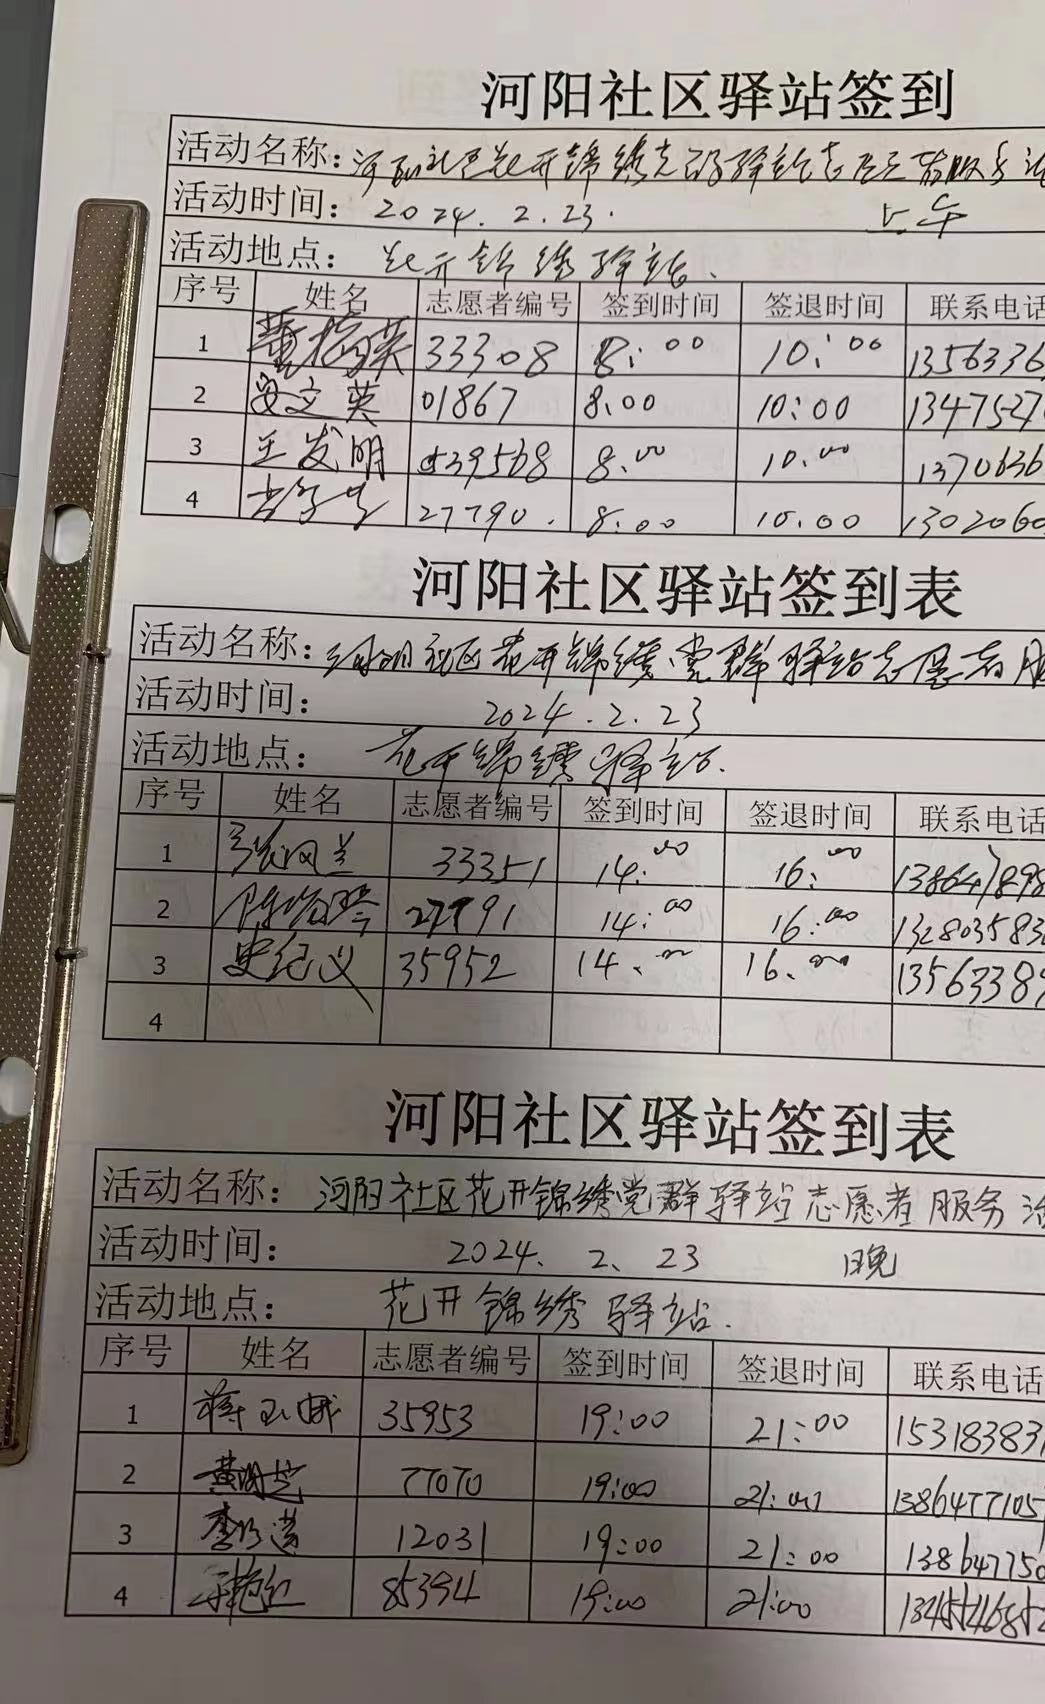 河阳社区驿站签到
活动名称：河阳社区花开锦绣党群驿站志愿者服务活
活动时间：2024.2.23. 上午
活动地点：花开锦绣驿站.
序号 姓名 志愿者编号 签到时间 签退时间 联系电话
1 33308 8:00 10:00 1356336
2 安文英 01867 8:00 10:00 1347527
3 王发明 039568 8:00 10:00 1370636
4 27790. 8:00 10:00 1302060
河阳社区驿站签到表
活动名称：河阳社区花开锦绣党群驿站志愿者服
活动时间： 2024.2.23
活动地点： 花开锦绣驿站.
序号 姓名 志愿者编号 签到时间 签退时间 联系电话
1 张凤兰 33351 14:00 16:00 138647898
2 27791 14:00 16:00 132803583
3 史纪义 35952 14:00 16:00 13563389
4
河阳社区驿站签到表
活动名称：河阳社区花开锦绣党群驿站志愿者服务活
活动时间： 2024.2.23 晚
活动地点： 花开锦绣驿站.
序号 姓名 志愿者编号 签到时间 签退时间 联系电话
1 蒋玉娥 35953 19:00 21:00 153183831
2 77070 19:00 21:00 1386477105
3 12031 19:00 21:00 138647750
4 85394 19:00 21:00